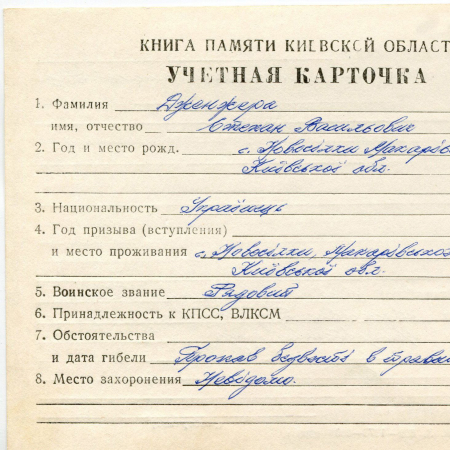 КНИГА ПАМЯТИ КИЕВСКОЙ ОБЛАСТ
УЧЕТНАЯ КАРТОЧКА
1. Фамилия Дженджера
имя, отчество Степан Васильович
2. Год и место рожд. с. Новосілки Макарівс
Київської обл.
3. Национальность Українець
4. Год призыва (вступления)
и место проживания с. Новосілки, Макарівської
Київської обл.
5. Воинское звание Рядовий
6. Принадлежность к КПСС, ВЛКСМ
7. Обстоятельства
и дата гибели Пропав безвісти в травн
8. Место захоронения Невідомо.